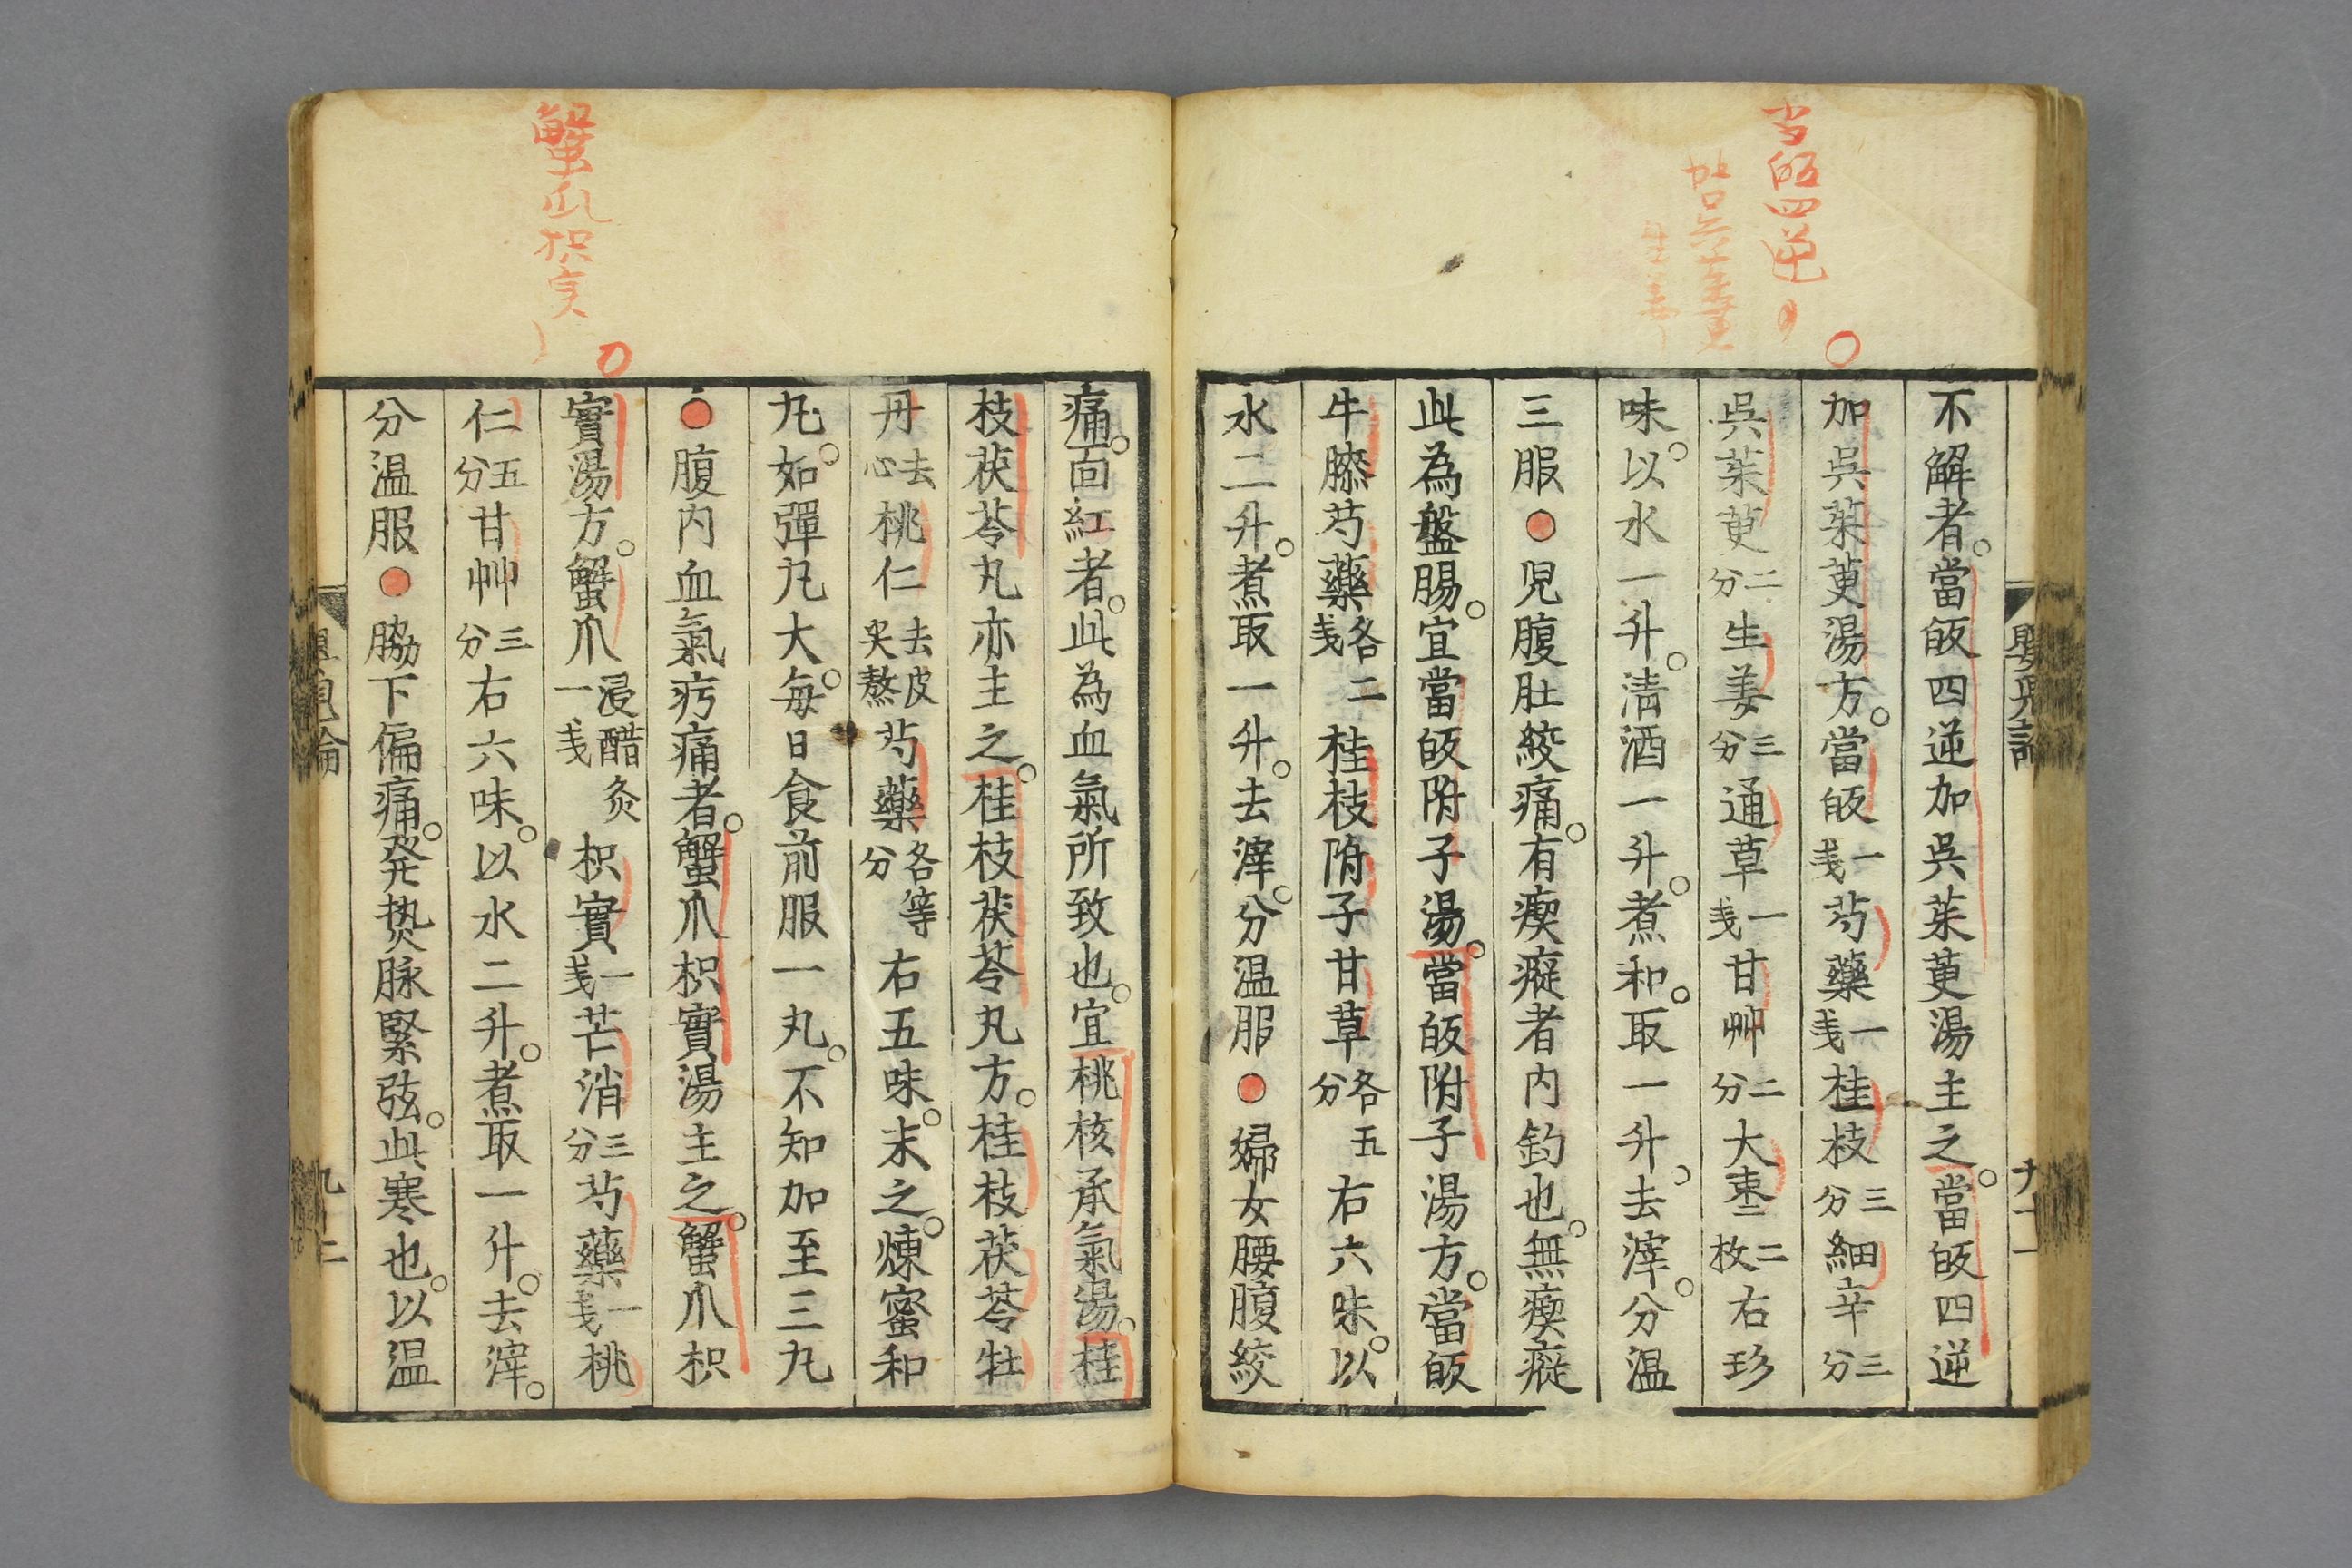 不解者。當皈四逆加呉茱萸湯主之。當皈四逆
加呉茱萸湯方。當皈一戔芍藥一戔桂枝三分細辛三分
呉茱萸二分生姜三分通草一戔甘艸二分大棗二枚右珍
味。以水一升。清酒一升。煮和。取一升。去滓。分温
三服●児腹肚絞痛。有瘈瘲者内釣也。無瘈瘲
此為盤腸。宜當皈附子湯。當皈附子湯方。當皈
牛膝芍藥各二戔桂枝附子甘草各五分右六味。以
水二升。煮取一升。去滓。分温服●婦女腰腹絞
痛。面紅者。此為血氣所致也。宜桃核承氣湯。桂
枝茯苓丸亦主之。桂枝茯苓丸方。桂枝茯苓牡
丹去心桃仁去皮尖熬芍藥各等分右五味。末之。煉蜜和
丸。如彈丸大。每日食前服一丸。不知加至三丸
●腹内血氣㽲痛者。蟹爪枳實湯主之。蟹爪枳
實湯方。蟹爪浸醋灸一戔枳實一戔芒消三分芍藥一戔桃
仁五分甘艸三分右六味。以水二升。煮取一升。去滓。
分温服●脇下偏痛。発热脉緊弦。此寒也。以温
当皈四逆
加呉茱萸
生姜
蟹爪枳実